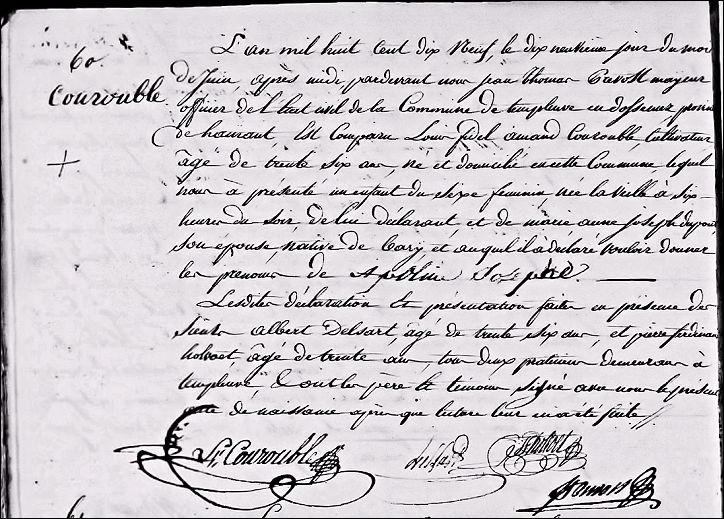 60.
Courouble
L'an mil huit cent dix neuf, le dix neuvième jour du moi
de Juin, après midi pardevant nous jean thomas mayeur
officier de l'Etat civil de la Commune de templeuve en dossemez provin
de hainaut, Est Comparu Louis fidel amand Courouble Cultivateur
âgé de trente six ans, né et domicilié en cette Commune lequel
nous à présenté un enfant du Sexe feminin, née la veille à six
heures du soir, de lui déclarant, et de marie anne joseph dupont
son épouse, native de et auquel il a declaré vouloir donner
les prénoms de Apoline Josephe.
Lesdites déclaration et présentation faites en présence des
Sieurs albert Delsart, âgé de trente six ans, et pierre ferdinand
holvoet, âgé de trente ans, tous deux praticiens demeurans à
templeuve, & ont les père et témoins signé avec nous le présent
acte de naissance après que lecture leur en a été faite //.
Courouble